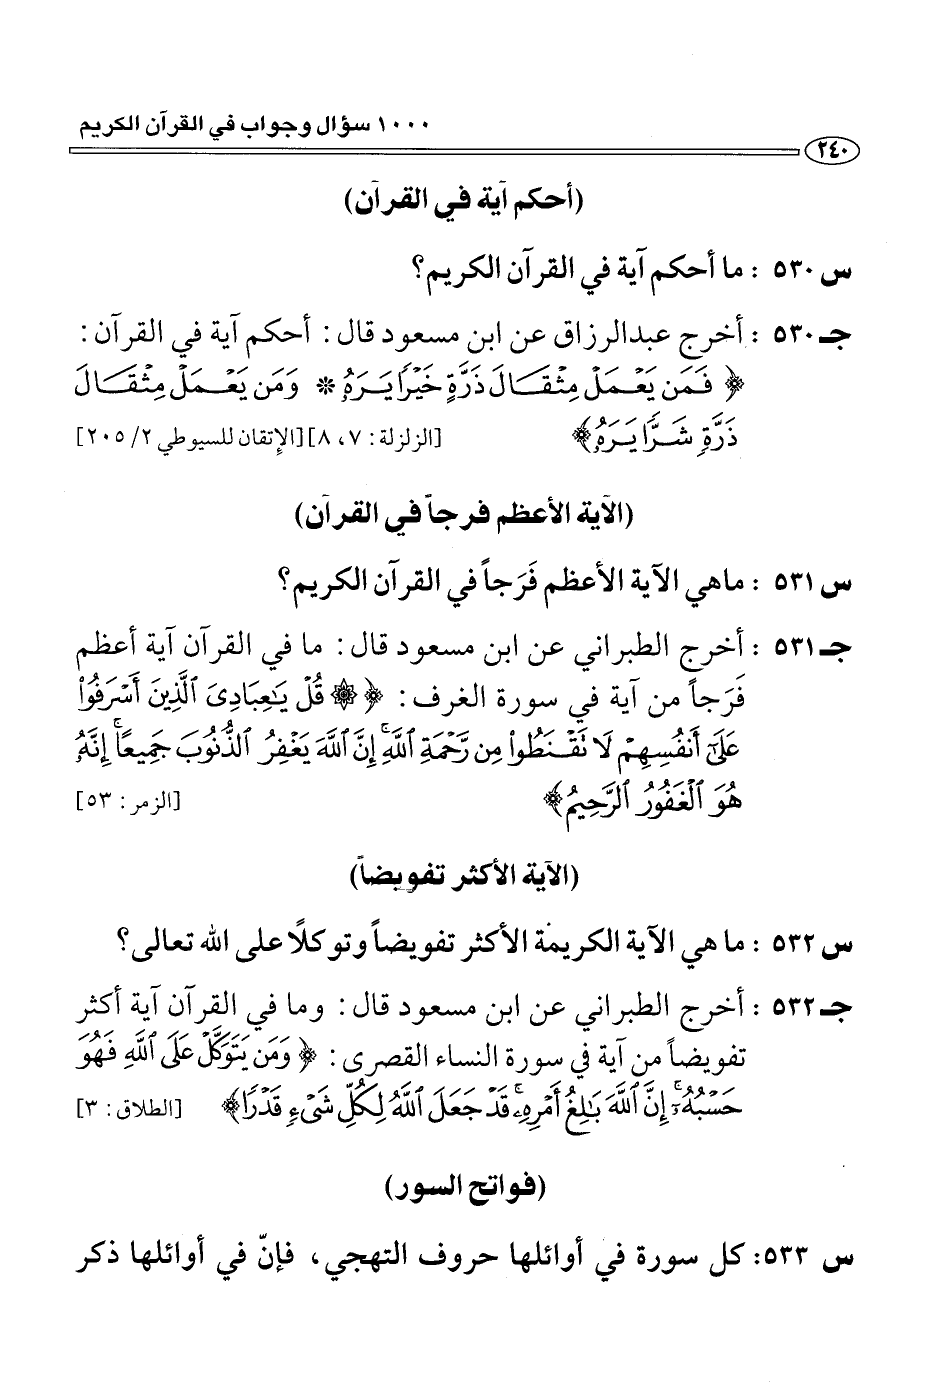 ١٠٠٠ سؤال وجواب في القرآن الكريم
٢٤٠
(أحكم آية في القرآن)
س ٥٣٠ : ما أحكم آية في القرآن الكريم؟
جـ ٥٣٠ : أخرج عبدالرزاق عن ابن مسعود قال: أحكم آية في القرآن:
﴿ فَمَن يَعْمَلْ مِثْقَالَ ذَرَّةٍ خَيْرًا يَرَهُۥ * وَمَن يَعْمَلْ مِثْقَالَ
ذَرَّةٍ شَرًّا يَرَهُۥ﴾ [الزلزلة: ٧، ٨][الإتقان للسيوطي ٢/ ٢٠٥]
(الآية الأعظم فرجاً في القرآن)
س ٥٣١ : ماهي الآية الأعظم فَرَجاً في القرآن الكريم؟
جـ ٥٣١ : أخرج الطبراني عن ابن مسعود قال: ما في القرآن آية أعظم
فَرَجاً من آية في سورة الغرف: ﴿ ۞ قُلْ يَٰعِبَادِىَ ٱلَّذِينَ أَسْرَفُوا۟
عَلَىٰٓ أَنفُسِهِمْ لَا تَقْنَطُوا۟ مِن رَّحْمَةِ ٱللَّهِ ۚ إِنَّ ٱللَّهَ يَغْفِرُ ٱلذُّنُوبَ جَمِيعًا ۚ إِنَّهُۥ
هُوَ ٱلْغَفُورُ ٱلرَّحِيمُ﴾ [الزمر: ٥٣]
(الآية الأكثر تفويضاً)
س ٥٣٢ : ما هي الآية الكريمة الأكثر تفويضاً وتوكلًا على الله تعالى؟
جـ ٥٣٢ : أخرج الطبراني عن ابن مسعود قال: وما في القرآن آية أكثر
تفويضاً من آية في سورة النساء القصرى: ﴿ وَمَن يَتَوَكَّلْ عَلَى ٱللَّهِ فَهُوَ
حَسْبُهُۥٓ ۚ إِنَّ ٱللَّهَ بَٰلِغُ أَمْرِهِۦ ۚ قَدْ جَعَلَ ٱللَّهُ لِكُلِّ شَىْءٍ قَدْرًا﴾ [الطلاق: ٣]
(فواتح السور)
س ٥٣٣: كل سورة في أوائلها حروف التهجي، فإنّ في أوائلها ذكر